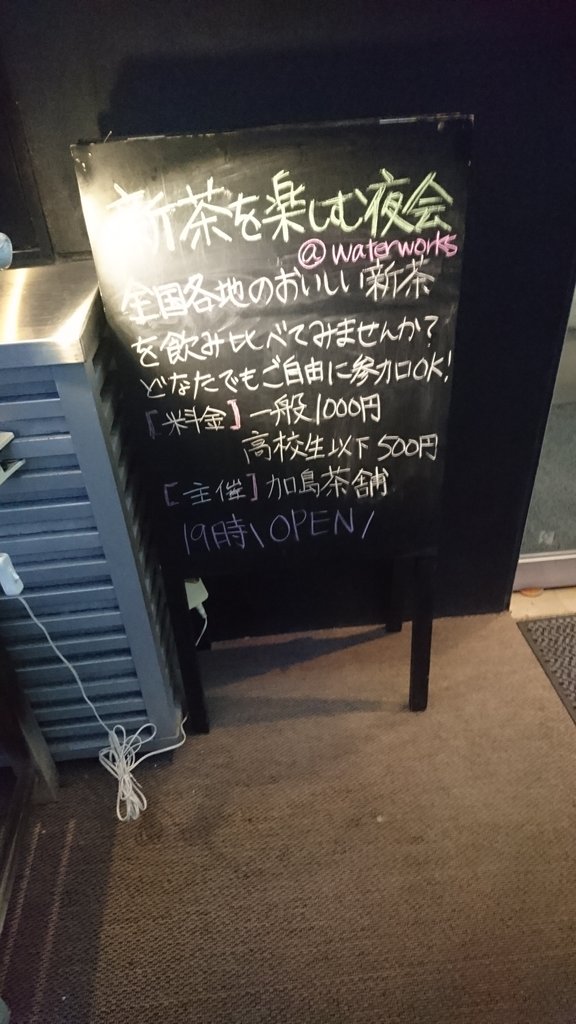 新茶を楽しむ夜会
@waterworks
全国各地のおいしい新茶
を飲み比べてみませんか?
どなたでもご自由に参加OK!
[料金]一般1000円
高校生以下500円
[主催]加島茶舗
19時\OPEN/